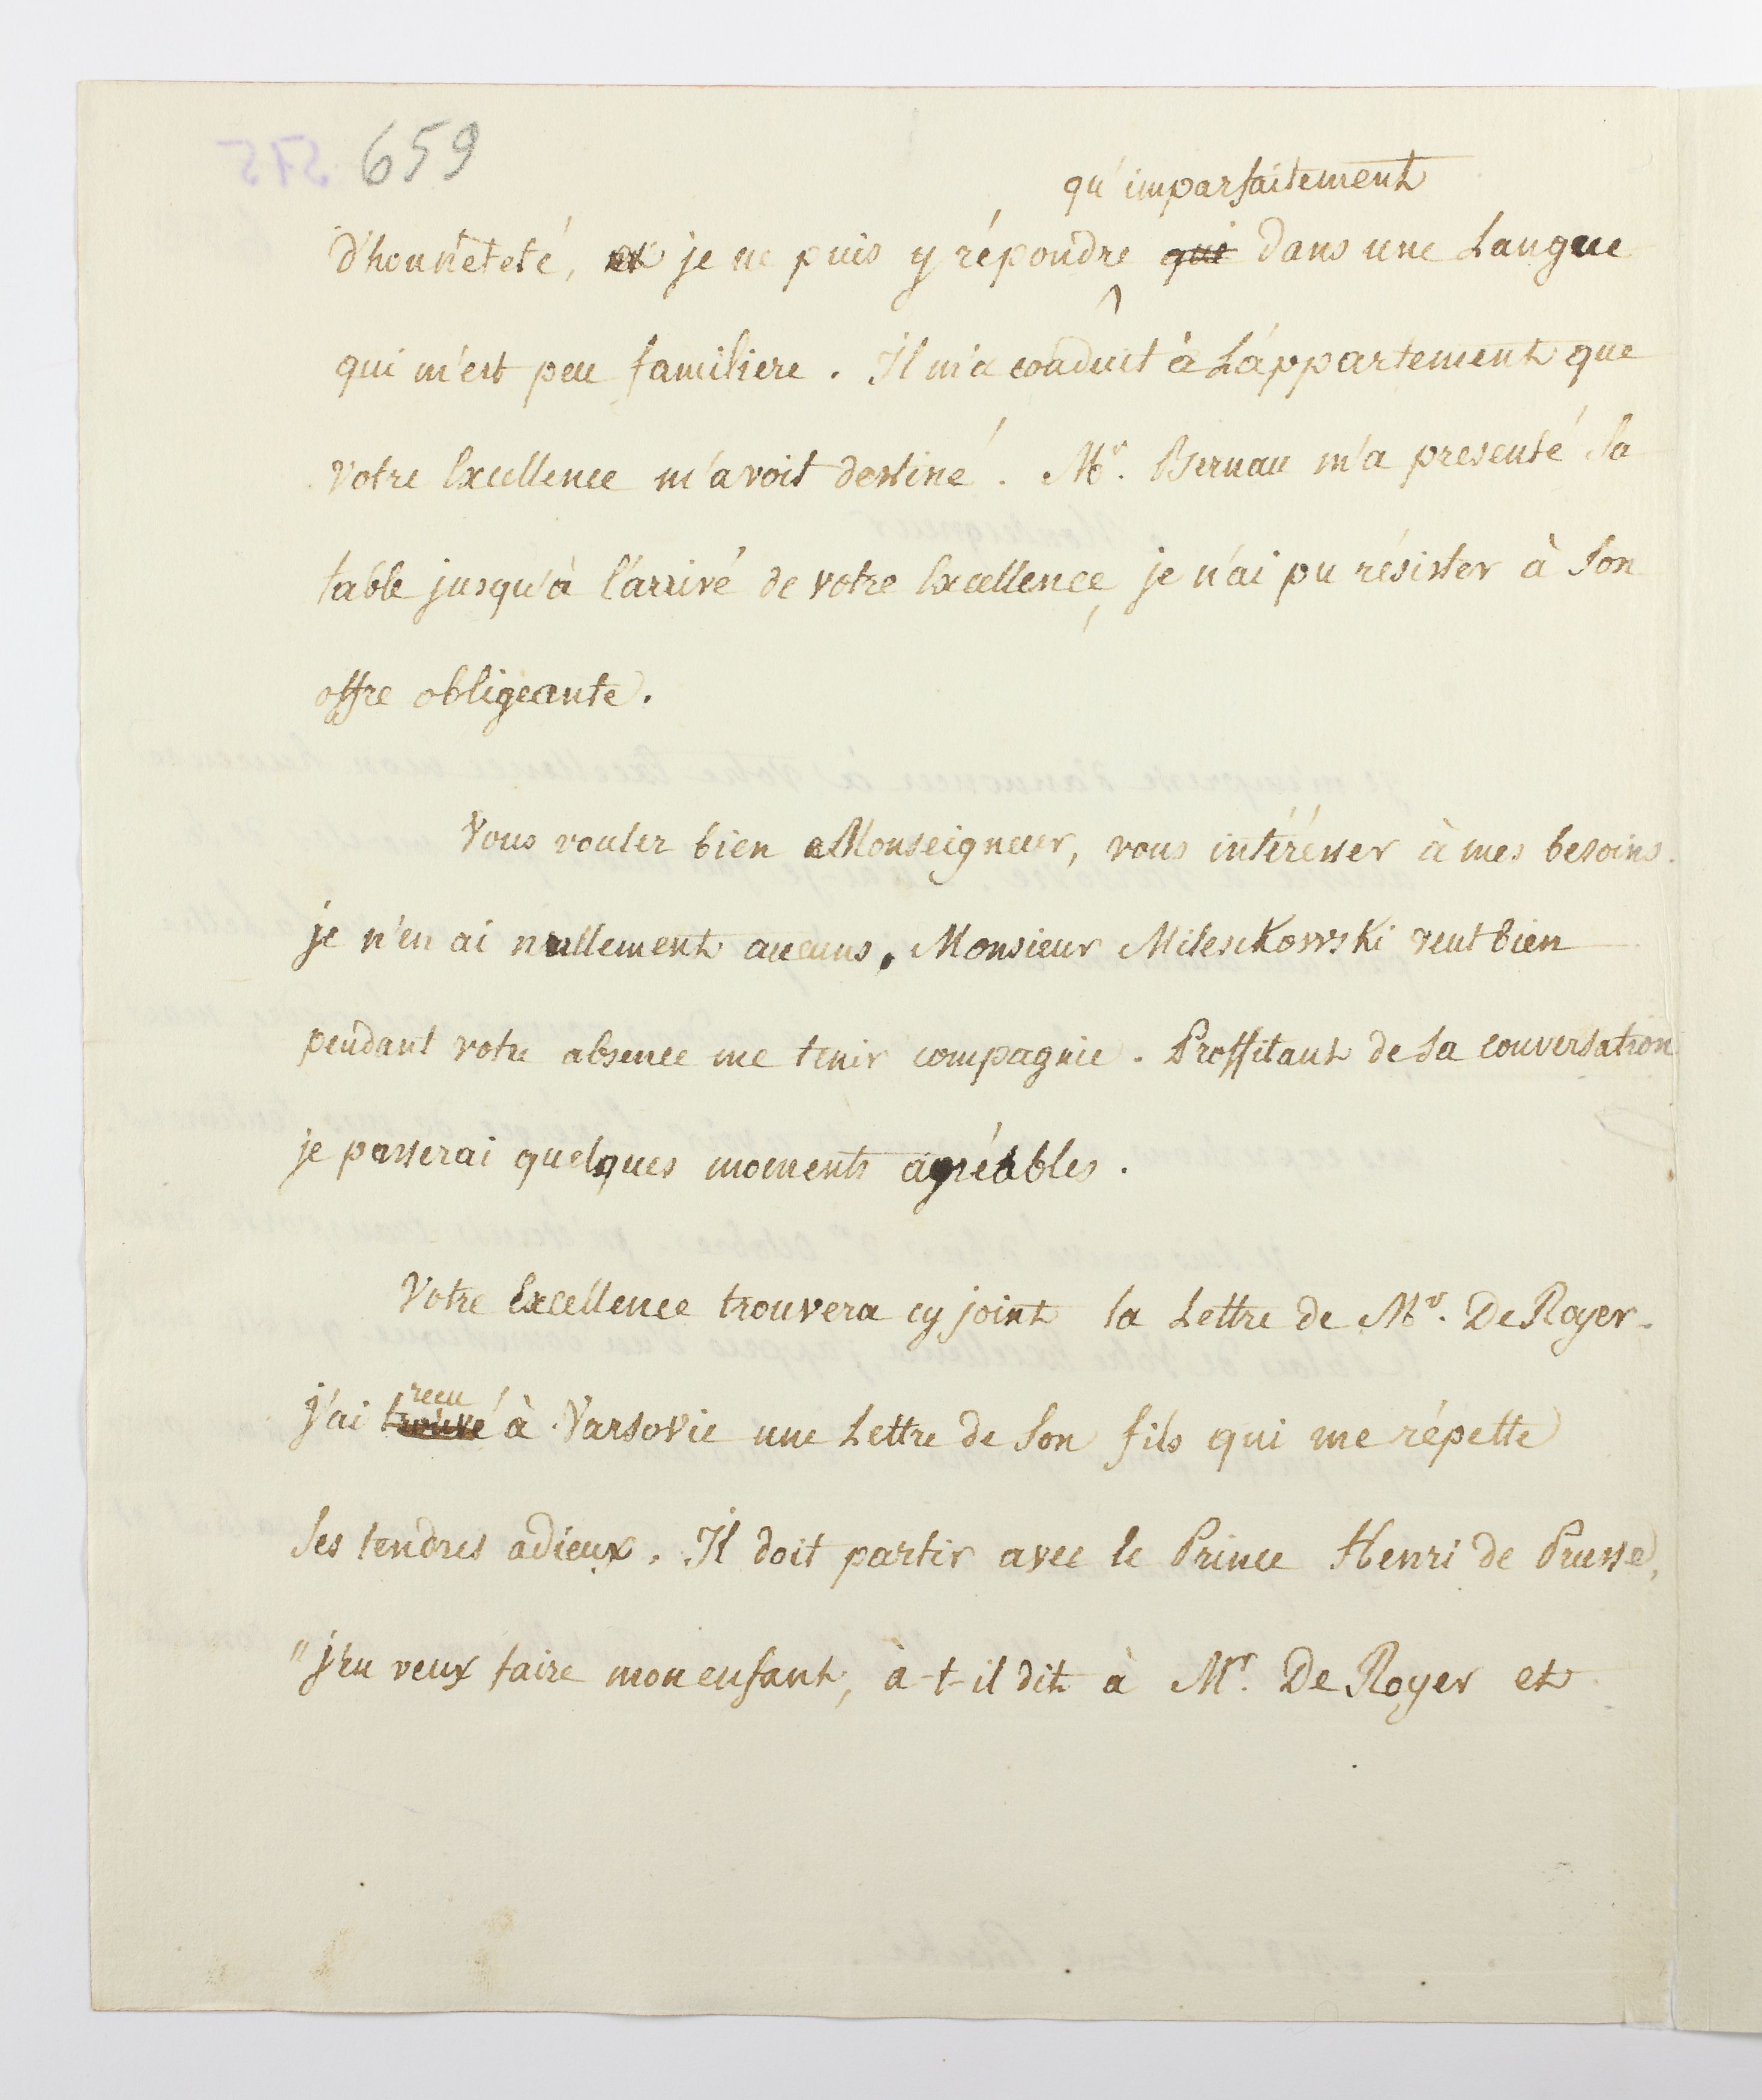 659
qu'imparfaitement
d'honnêteté, je ne puis y répondre qui dans une Langue
qui m'est peu familiere. Il m'a conduit à L'áppartement que
Votre Excellence m'avoit destiné. Mr. Bernau m'a presenté Sa
table jusqu'à l'arrivé de votre Excellence, je n'ai pu résister à Son
offre obligeante.
Vous voulez bien Monseigneur, vous intéresser à mes besoins.
je n'en ai nullement aucuns. Monsieur Milesckowski veut bien
pendant votre absence me tenir compagnie. Proffitant de Sa conversation
je passerai quelques moments agréables.
Votre Excellence trouvera cy joint la Lettre de Mr. De Royer.
reçu
j'ai trouvé à Varsovie une Lettre de Son fils qui me répette
Ses tendres adieux. Il doit partir avec le Prince Henri de Prusse,
"j'en veux faire mon enfant, à-t-il dit à Mr. De Royer et